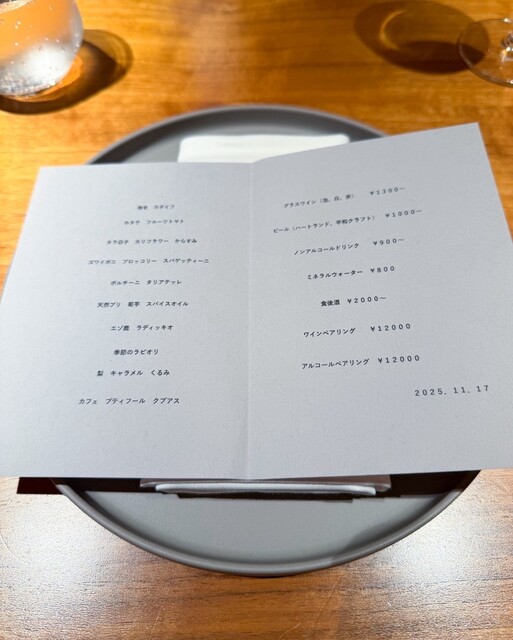 海老 カダイフ
ホタテ フルーツトマト
タラ白子 カリフラワー からすみ
ズワイガニ ブロッコリー スパゲッティーニ
ポルチーニ タリアテッレ
天然ブリ 菊芋 スパイスオイル
エゾ鹿 ラディッキオ
季節のラビオリ
梨 キャラメル くるみ
カフェ プティフール クプアス
グラスワイン（泡、白、赤） ￥1300〜
ビール（ハートランド、平和クラフト） ￥1000〜
ノンアルコールドリンク ￥900〜
ミネラルウォーター ￥800
食後酒 ￥2000〜
ワインペアリング ￥12000
アルコールペアリング ￥12000
2025.11.17